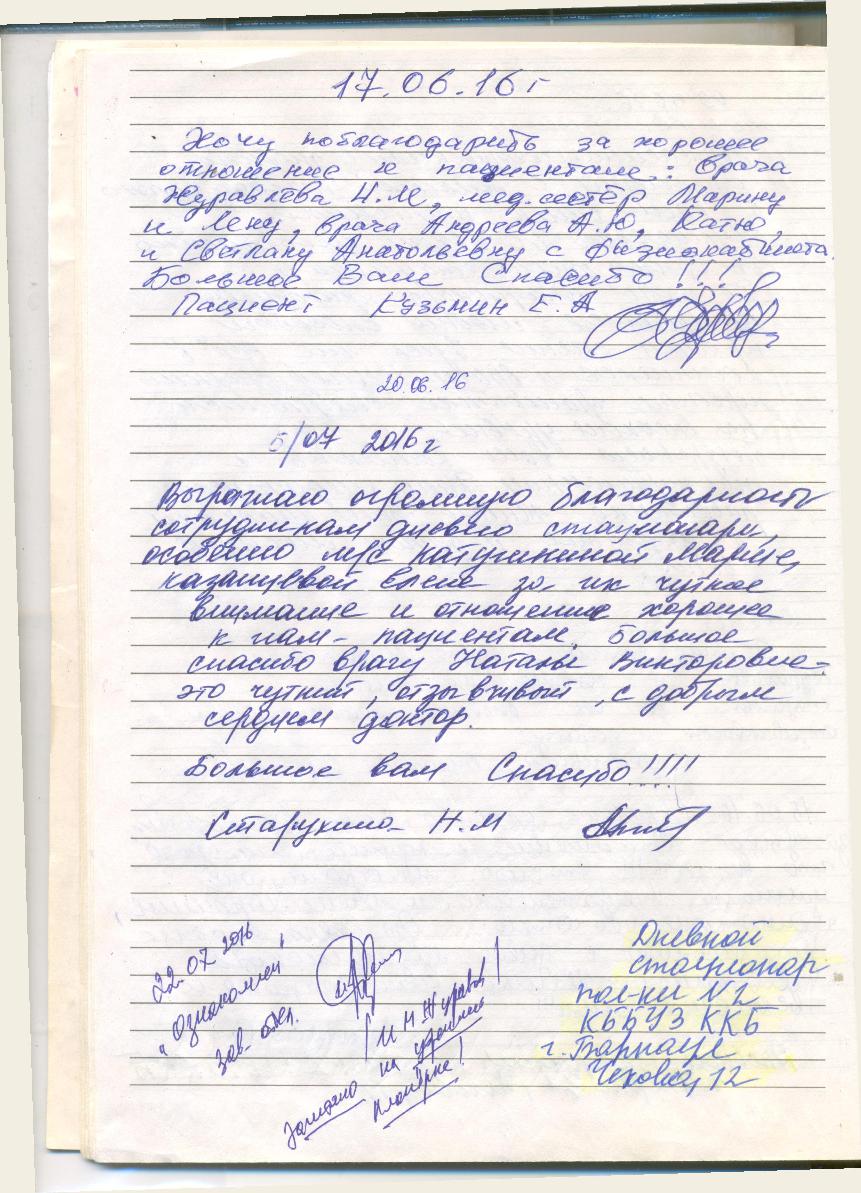 17.06.16 г
Хочу поблагодарить за хорошее
отношение к пациентам: врача
Журавлёва Н.М, мед.сестёр Марину
и Лену, врача Андреева А.Ю, Катю,
и Светлану Анатольевну с физиокабинета.
Большое Вам Спасибо!!!
Пациент Кузьмин Е.А
20.06.16
5/07 2016 г
Выражаю огромную благодарность
сотрудникам дневного стационара,
особенно м/с Катушкиной Марине,
Казанцевой Елене за их чуткое
внимание и отношение хорошее
к нам - пациентам. Большое
спасибо врачу Наталье Викторовне -
это чуткий, отзывчивый, с добрым
сердцем доктор.
Большое вам Спасибо!!!!
Старухина Н.М
22.07 2016
"Ознакомлен"
зав. отд.
на
планёрке!
Дневной
стационар
пол-ки N2
КГБУЗ ККБ
г. Барнаул
Чехова, 12